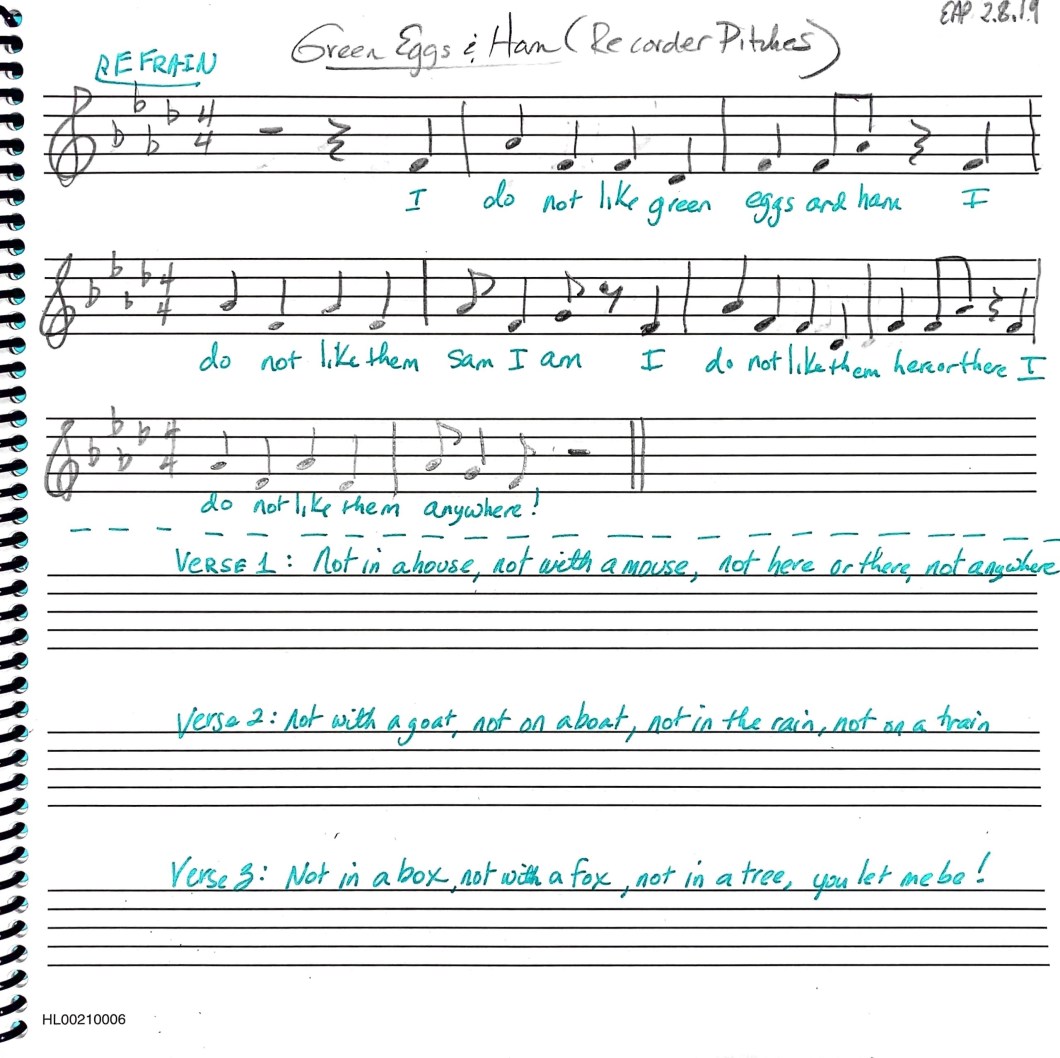 EAP 2.8.19
Green Eggs & Ham (Recorder Pitches)
REFRAIN
4
4
I do not like green eggs and ham I
4
4
do not like them Sam I am I do not like them here or there I
4
4
do not like them anywhere!
VERSE 1: Not in a house, not with a mouse, not here or there, not anywhere
Verse 2: Not with a goat, not on a boat, not in the rain, not on a train
Verse 3: Not in a box, not with a fox, not in a tree, you let me be!
HL00210006